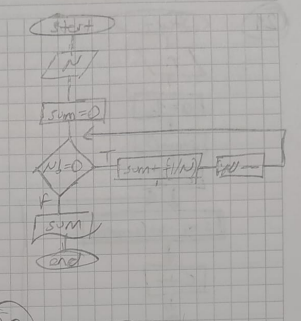 start
N
sum=0
N!=0
T
sum+=(1/N)
N--
F
sum
end